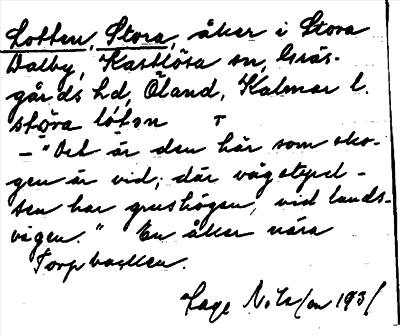 Lotten, Stora, åker i Stora
Dalby, Kastlösa sn, Gräs-
gårds hd, Öland, Kalmar l.
stora lótən
– "Det är den här som sko-
gen är vid, där vägstyrel-
sen har grushögen, vid lands-
vägen." En åker nära
Torpbacken.
Hage Nilsson 1931